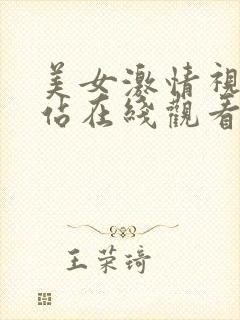 美女激情視
佔在綫觀看
王荣琦